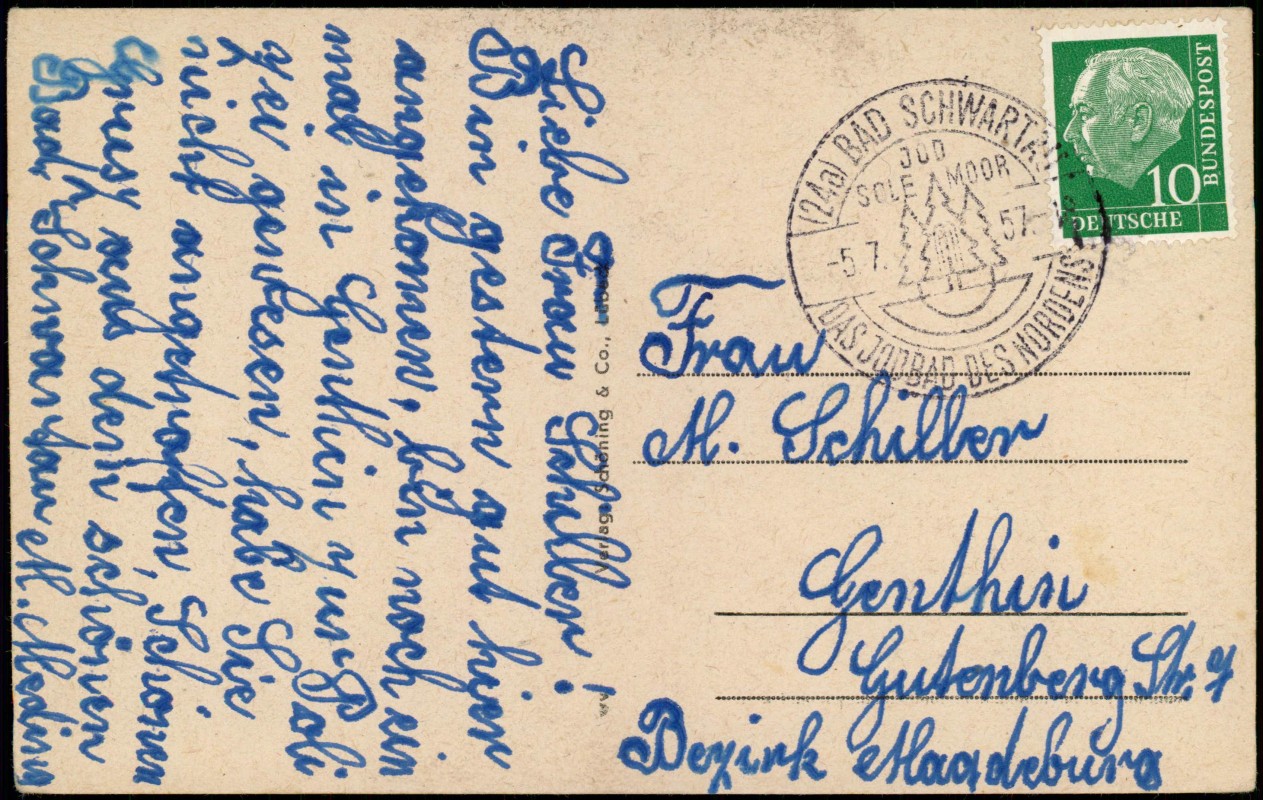 Liebe Frau Schiller!
Bin gestern gut hier
angekomen, bin noch ein
mal in Genthin zur Poli
zei gewesen, habe Sie
nicht angetroffen, Schönen
Grus aus den schönen
Bad. Schwartau M. Meding
Verlag: Schöning & Co., Lübeck
(24a) BAD SCHWARTAU
JOD
SOLE MOOR
-5.7. 57-
DAS JODBAD DES NORDENS
10
DEUTSCHE
BUNDESPOST
Frau
M. Schiller
Genthin
Gutenberg Str. 7
Bezirk Magdeburg